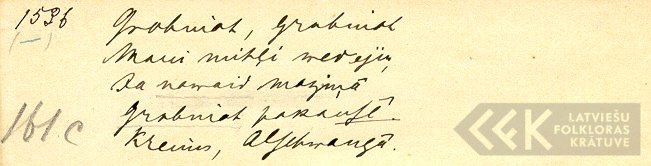 1536
Grobniat, grobniat
Mani mitḷi wedejiņ,
Ka nawaid maziņā
grobniat pakaustē.
Kreims, Alschwangā.
161c
LATVIEŠU
FOLKLORAS
KRĀTUVE